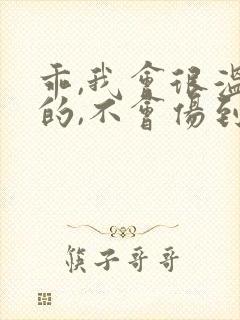 乖,我會很溫
的,不會傷到
筷子哥哥